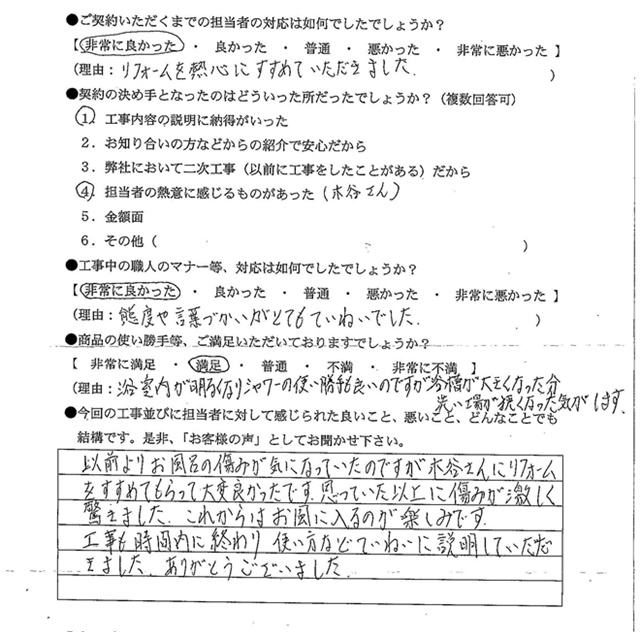 ●ご契約いただくまでの担当者の対応は如何でしたでしょうか？
【 非常に良かった ・ 良かった ・ 普通 ・ 悪かった ・ 非常に悪かった 】
（理由：リフォームを熱心にすすめていただきました。 ）
●契約の決め手となったのはどういった所だったでしょうか？（複数回答可）
１．工事内容の説明に納得がいった
２．お知り合いの方などからの紹介で安心だから
３．弊社において二次工事（以前に工事をしたことがある）だから
４．担当者の熱意に感じるものがあった（木谷さん）
５．金額面
６．その他（ ）
●工事中の職人のマナー等、対応は如何でしたでしょうか？
【 非常に良かった ・ 良かった ・ 普通 ・ 悪かった ・ 非常に悪かった 】
（理由：態度や言葉づかいがとてもていねいでした。 ）
●商品の使い勝手等、ご満足いただいておりますでしょうか？
【 非常に満足 ・ 満足 ・ 普通 ・ 不満 ・ 非常に不満 】
（理由：浴室内が明るくなりシャワーの使い勝手も良いのですが浴槽が大きくなった分
洗い場が狭くなった気がします。
●今回の工事並びに担当者に対して感じられた良いこと、悪いこと、どんなことでも
結構です。是非、「お客様の声」としてお聞かせ下さい。
以前よりお風呂の傷みが気になっていたのですが木谷さんにリフォーム
をすすめてもらって大変良かったです。思っていた以上に傷みが激しく
驚きました。これからはお風に入るのが楽しみです。
工事も時間内に終わり 使い方などていねいに説明していただ
きました。ありがとうございました。